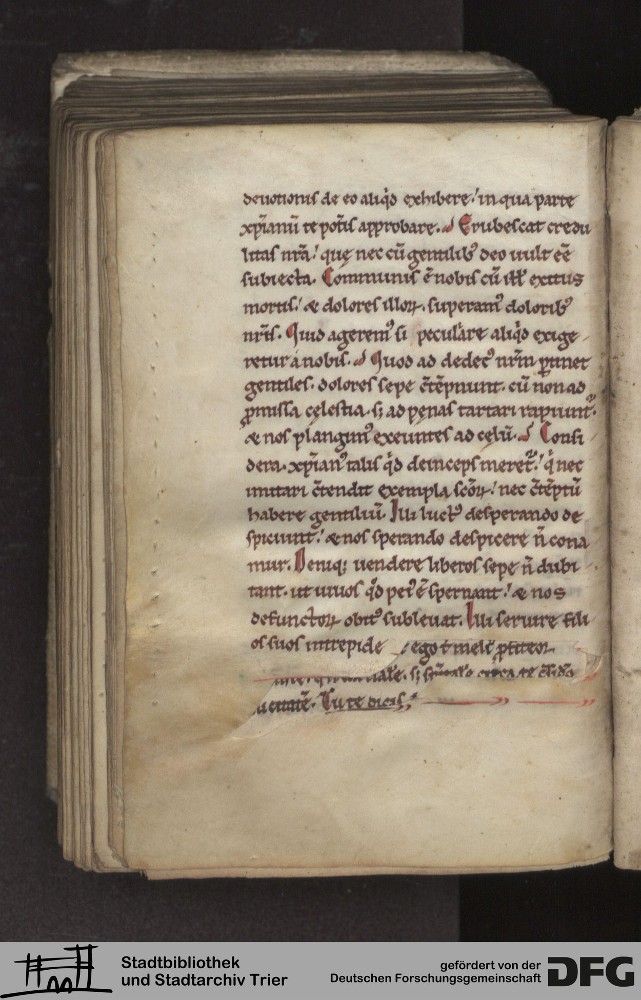 deuotionis de eo aliq̇d exhibere! in qua parte
xp̄ianū te pot̄is approbare. Erubescat credu
litas nr̄a! quę nec cū gentilibꝰ deo uult ēē
subiecta. Communis ē nobis cū ill̄ exitus
mortis! & dolores illoꝝ. superamꝰ doloribꝰ
nr̄is. Quid ageremꝰ si peculiare aliq̇d exige
retur a nobis. Quod ad dedecꝰ nr̄m ꝑtinet
gentiles. dolores sepe ↄ̄tēpnunt. cū non ad
ꝓmissa celestia. s; ad penas tartari rapiunt᷑.
& nos plangimꝰ exeuntes ad celū. Consi
dera. xp̄ianꝰ talis q̇d deinceps meret᷑! q̇ nec
imitari ↄ̄tendit exempla scōꝝ! nec ↄ̄tēptū
habere gentiliū. Illi luctꝰ desperando de
spiciunt! & nos sperando despicere n̄ cona
mur. Deniq; uendere liberos sepe n̄ dubi
tant. ut uiuos q̇d peiꝰ ē spernant! & nos
defunctoꝝ obitꝰ subleuat. Illi seruire fili
os suos intrepide ego
Tu te dicis
Stadtbibliothek
und Stadtarchiv Trier
gefördert von der
Deutschen Forschungsgemeinschaft
DFG